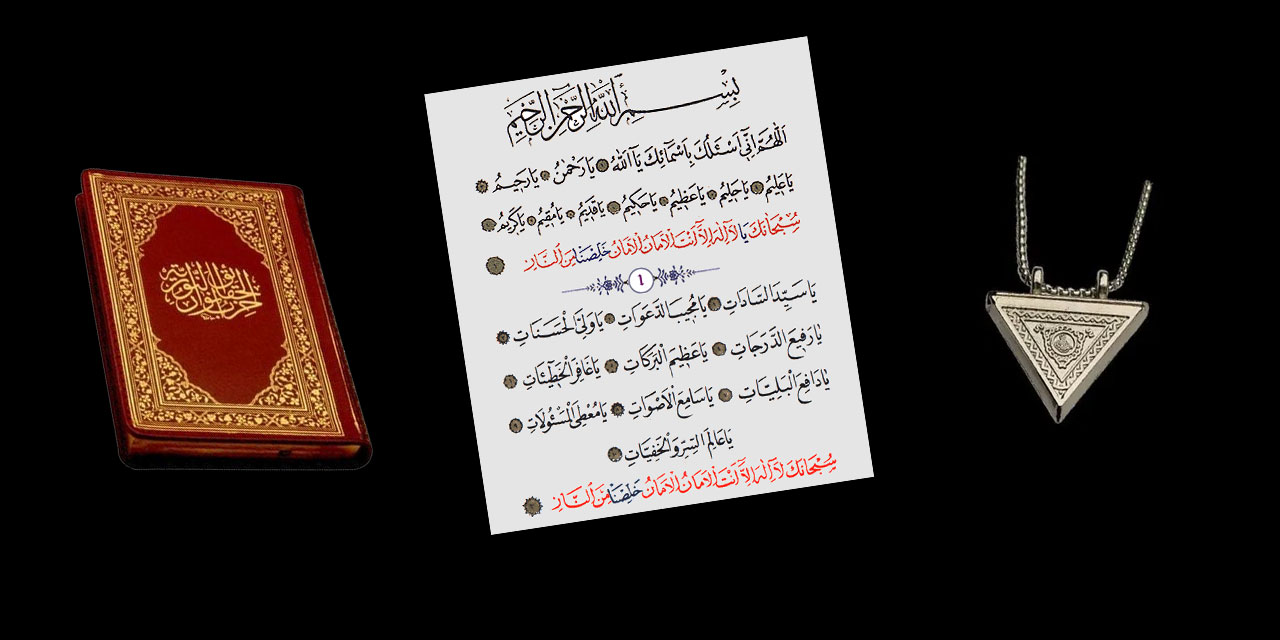 حزب انوار الحقائق النورية
بِسْمِ اللهِ الرَّحْمٰنِ الرَّحِيمِ
اَللّٰهُمَّ اِنِّى اَسْئَلُكَ بِاَسْمَائِكَ يَا اَللّٰهُ يَا رَحْمٰنُ يَا رَحِيمُ
يَا عَلِيمُ يَا حَلِيمُ يَا عَظِيمُ يَا حَكِيمُ يَا قَدِيمُ يَا مُقِيمُ يَا كَرِيمُ
سُبْحَانَكَ يَا لَآ اِلٰهَ اِلَّآ اَنْتَ اْلاَمَانُ اْلاَمَانُ خَلِّصْنَا مِنَ النَّارِ
١
يَا سَيِّدَ السَّادَاتِ يَا مُجِيبَ الدَّعَوَاتِ يَا وَلِىَّ الْحَسَنَاتِ
يَا رَفِيعَ الدَّرَجَاتِ يَا عَظِيمَ الْبَرَكَاتِ يَا غَافِرَ الْخَطِٓيئَاتِ
يَا دَافِعَ الْبَلِيَّاتِ يَا سَامِعَ اْلاَصْوَاتِ يَا مُعْطِىَ الْمَسْئُولَاتِ
يَا عَالِمَ السِّرِّ وَالْخَفِيَّاتِ
سُبْحَانَكَ لَآ اِلٰهَ اِلَّآ اَنْتَ اْلاَمَانُ اْلاَمَانُ خَلِّصْنَا مِنَ النَّارِ